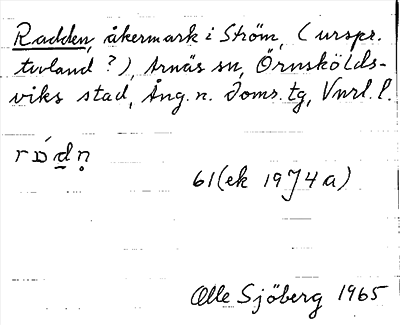 Radden, åkermark i Ström, (urspr.
tuvland ?), Arnäs sn, Örnskölds-
viks stad, Ång. n. Doms. tg, Vnrl. l.
61 (ek 19J4a)
Olle Sjöberg 1965